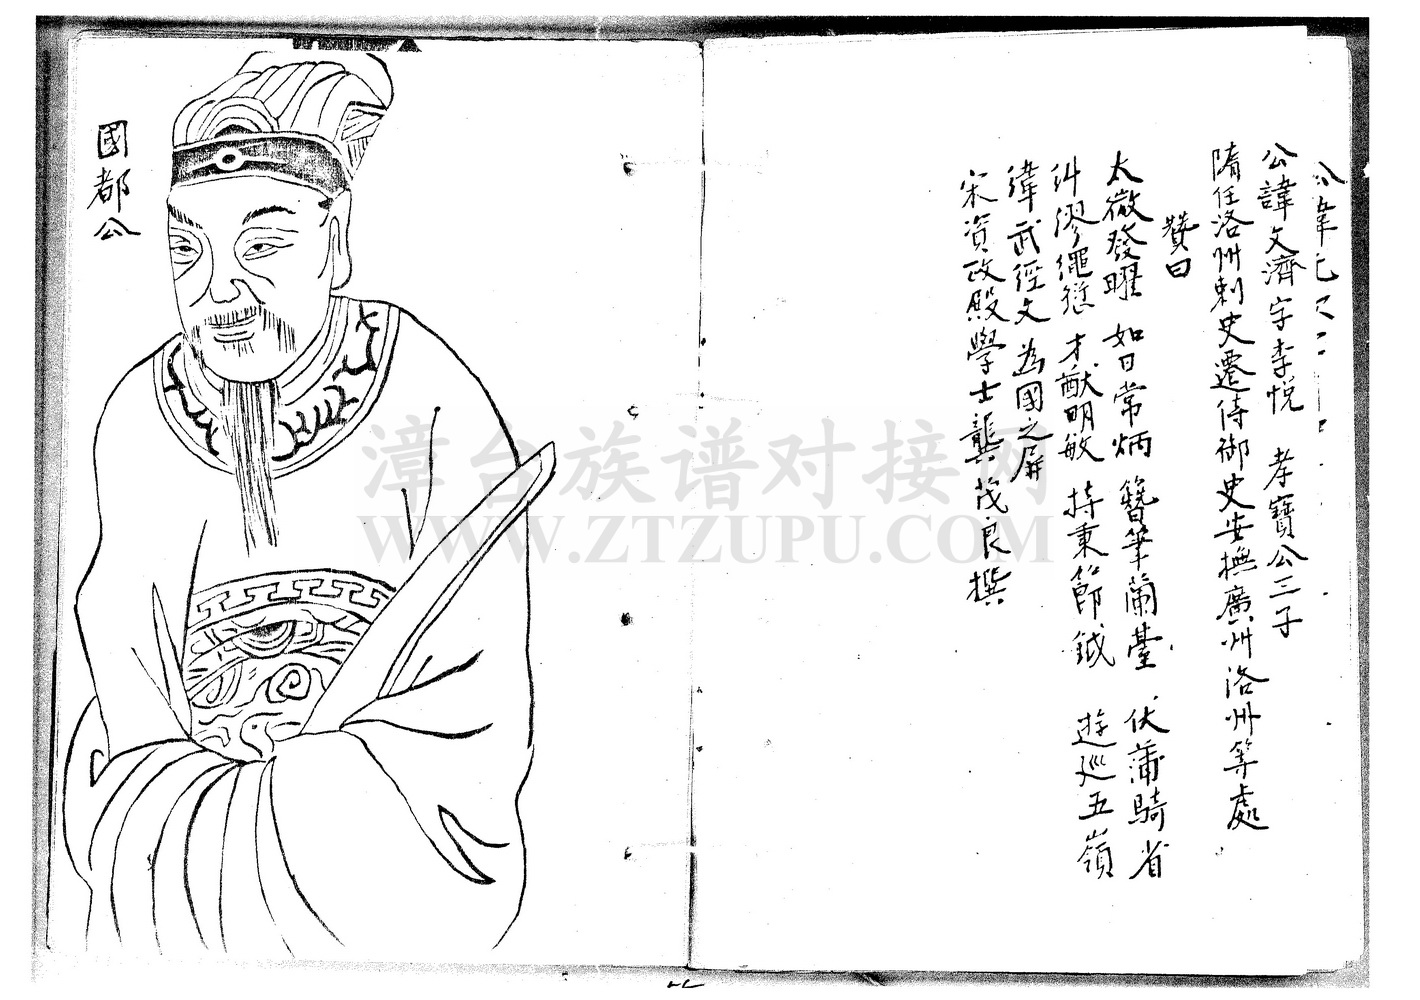 公諱文濟字李悅 孝寶公三子
隋任洛州刺史遷侍御史安撫廣州洛州等處
贊曰
太微發曜 如日常炳 簪筆蘭臺 伏蒲騎省
糾繆繩愆 才猷明敏 持秉節鉞 遊巡五嶺
緯武經文 為國之屏
宋資政殿學士龔茂良撰
國都公
漳台族谱对接网
WWW.ZTZUPU.COM